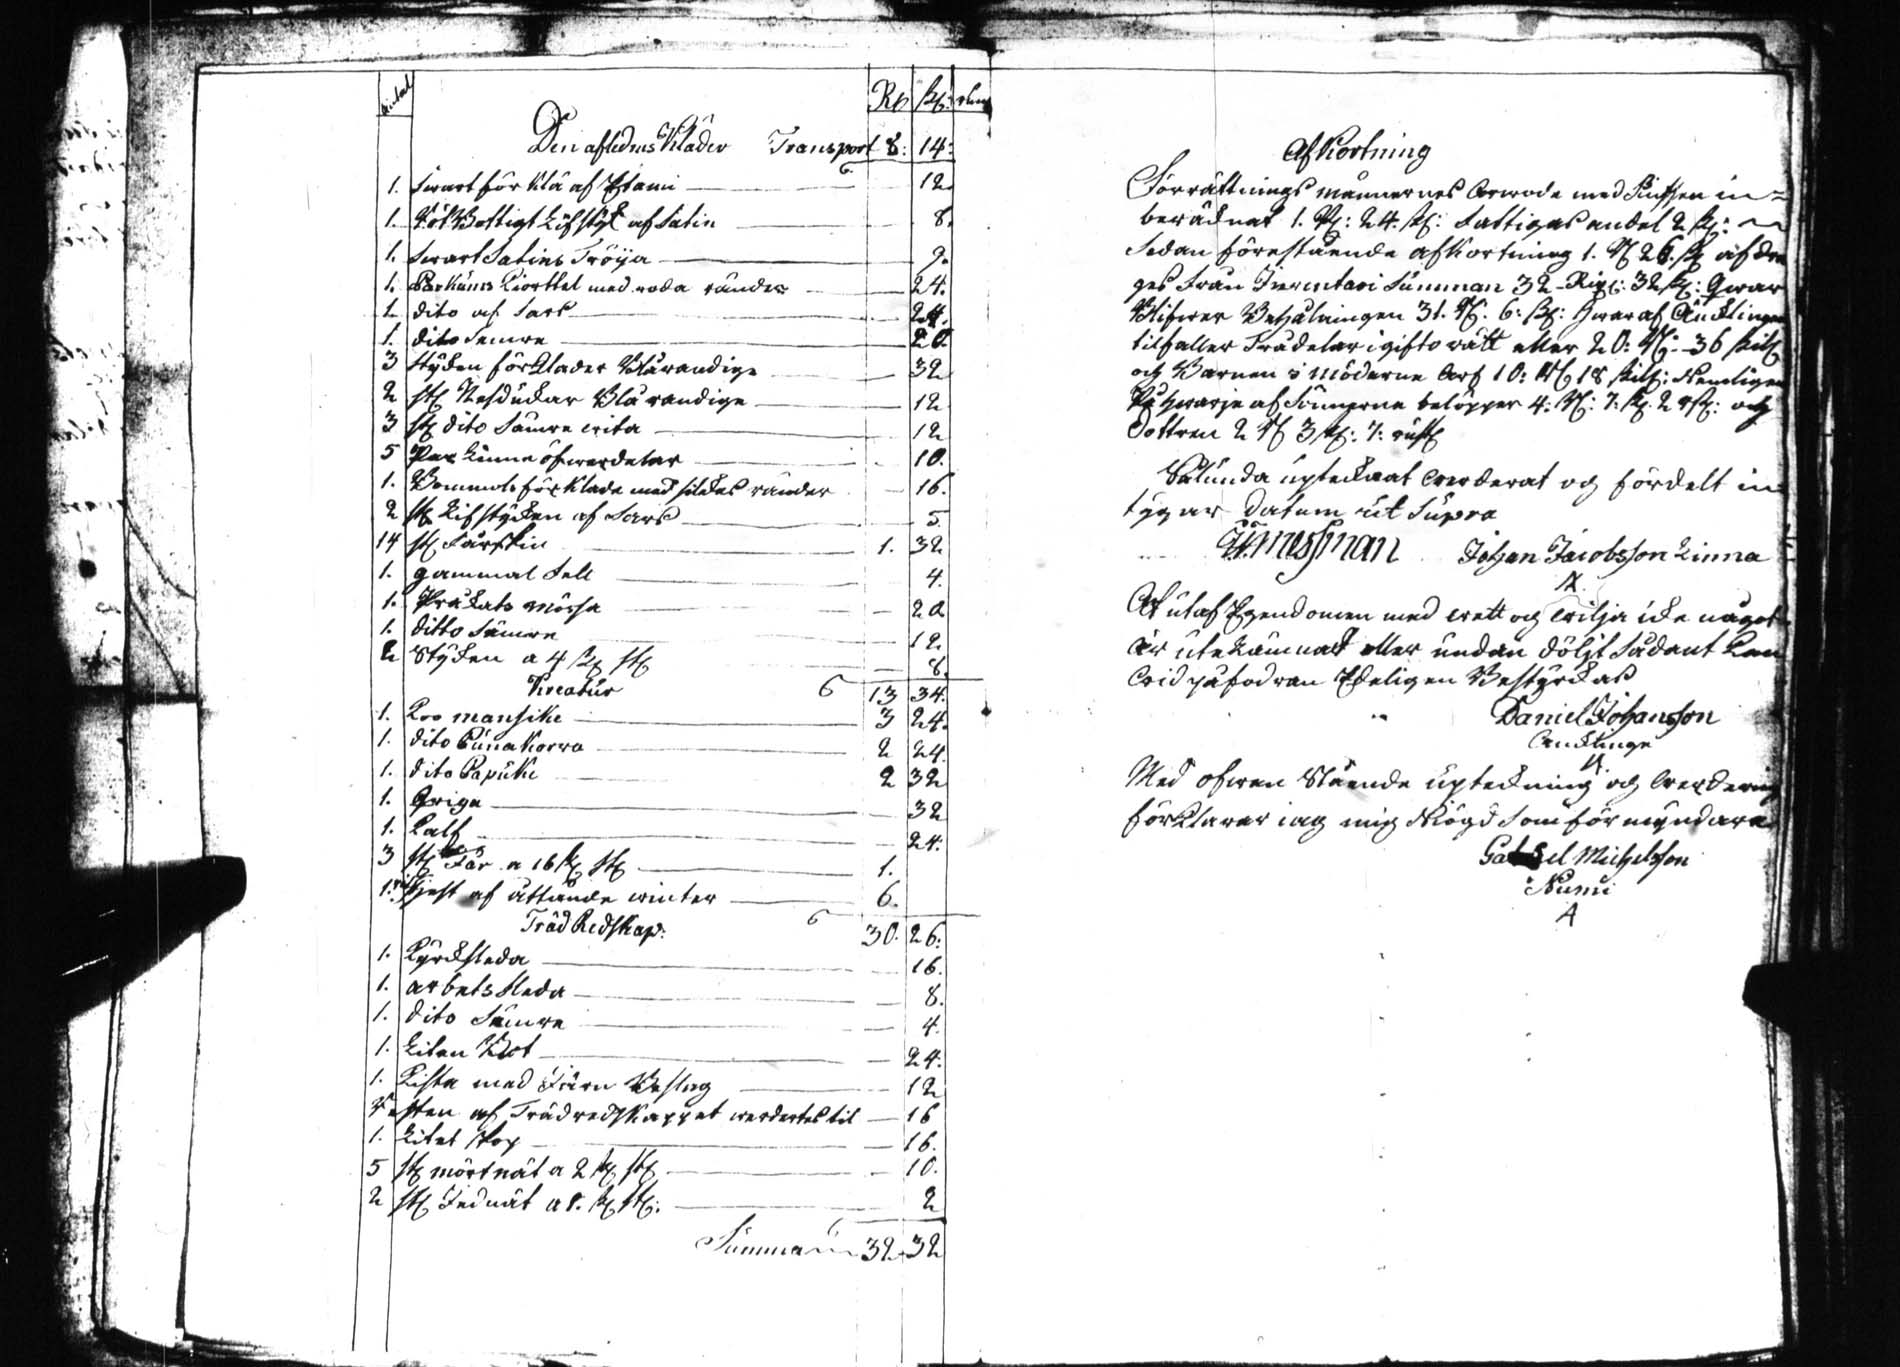 antal Rd sk: rund
Den aflednes Kläder Transport 8: 14:
1. Swart för klä af Etami — 12
1. Röt Bottigt Lifstyk af Satin — 8.
1. Swart Satins Tröija — 9.
1. Parkums Kiorttel med röda ränder — 24.
1. dito af Sars — 24.
1. dito Semre — 20.
3 styken förklader Blårandige — 32
2 st Nesdukar Blå randige — 12
3 st dito Sämre wita — 12
5 Par Linne öfwerdelar — 10.
1. Bommols förklade med silkes ränder — 16.
2 st Lifstyken af Sars — 5.
14 st Fårskin 1. 32
1. gammal Fell — 4.
1. Prakats mössa — 20
1. ditto Sämre — 12
2 Styken a 4 sk st — 8.
Kreatur 13 34.
1. Koo mansike 3 24.
1. dito Punakorva 2 24.
1. dito Papuki 2 32
1. Qviga — 32
1. Kalf — 24.
3 st Får a 16 sk st 1.
1. Hest af åttånde winter 6.
Träd Redskap: 30. 26:
1. Kyrcksleda — 16.
1. arbets sleda — 8.
1. dito Sämre — 4.
1. Liten Båt — 24.
1. Kista med Järn Beslag — 12
Resten af Trädredskappet werdertes til — 16
1. Litet Rog — 16.
5 st mörtnät a 2 sk st — 10.
2 st nät a 1. sk st: — 2
Summa 32. 32
Afkortning
Förrättnings männernes Arwode med Skutsen in=
beräknat 1. Rd: 24. sk: Fattigas andel 2 sk:
Sedan förestående afkortning 1. Rd 26. sk afdra
ges från Inventari Summan 32 Rixd: 32 sk: Qwar
Blifwer Behålningen 31. Rd. 6: sk: hwaraf Äncklingen
tilfaller Trädelar i gifto rätt eller 20: Rd: 36 skil
och Barnen i möderne Arf 10: Rd 18 skil: Nemligen
På hwarje af Sönnerne belöpper 4: Rd: 7: sk. 2 rst: och
Dottren 2 Rd 3 sk: 7: rust
Sålunda uptecknat werderat og fördelt in
tygar Datum ut Supra
Johan Jacobsson Linna
At utaf Egendomen med wett og wilja icke något
är utelämnat eller undan döljt sådant kan
wid påfodran Edeligen Bestyrckas
Daniel Johansson
Anckling
Med ofwan Stående upteckning og werdering
förklarar iag mig Nögd Som förmyndare
Gabriel Michelsson
Numi